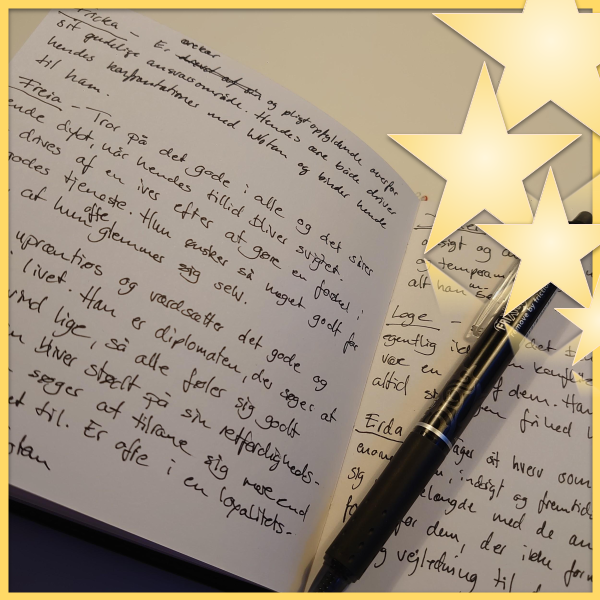 Fricka – Er ærekær,
og pligtopfyldende overfor
sit gudelige ansvarsområde. Hendes ære både driver
hendes konfrontationer med Wotan og binder hende
til ham.
Freia – Tror på det gode i alle og det sårer
ende dybt, når hendes tillid bliver svigtet.
drives af en iver efter at gøre en forskel i
odes tjeneste. Hun ønsker så meget godt for
at hun ofte glemmer sig selv.
uprætentiøs og værdsætter det gode og
livet. Han er diplomaten, der søger at
vind lige, så alle føler sig godt
bliver stødt på sin retfærdigheds-
søger at tilrane sig mere end
et til. Er ofte i en loyalitets-
sigt og
og temperam
alt han
Loge –
egentlig
være en
altid
af dem. Han
en fri hed
Erda
at hverv som
indsigt og fremtids
sig
med de an
for dem, der ikke
og vejledning til